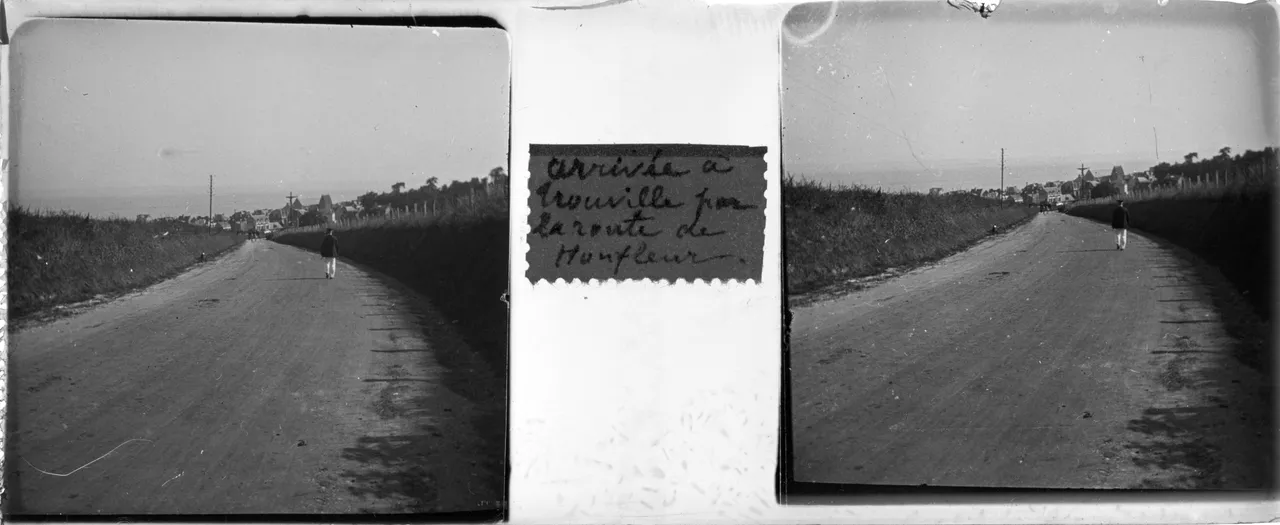 arrivée à
trouville par
la route de
Honfleur.